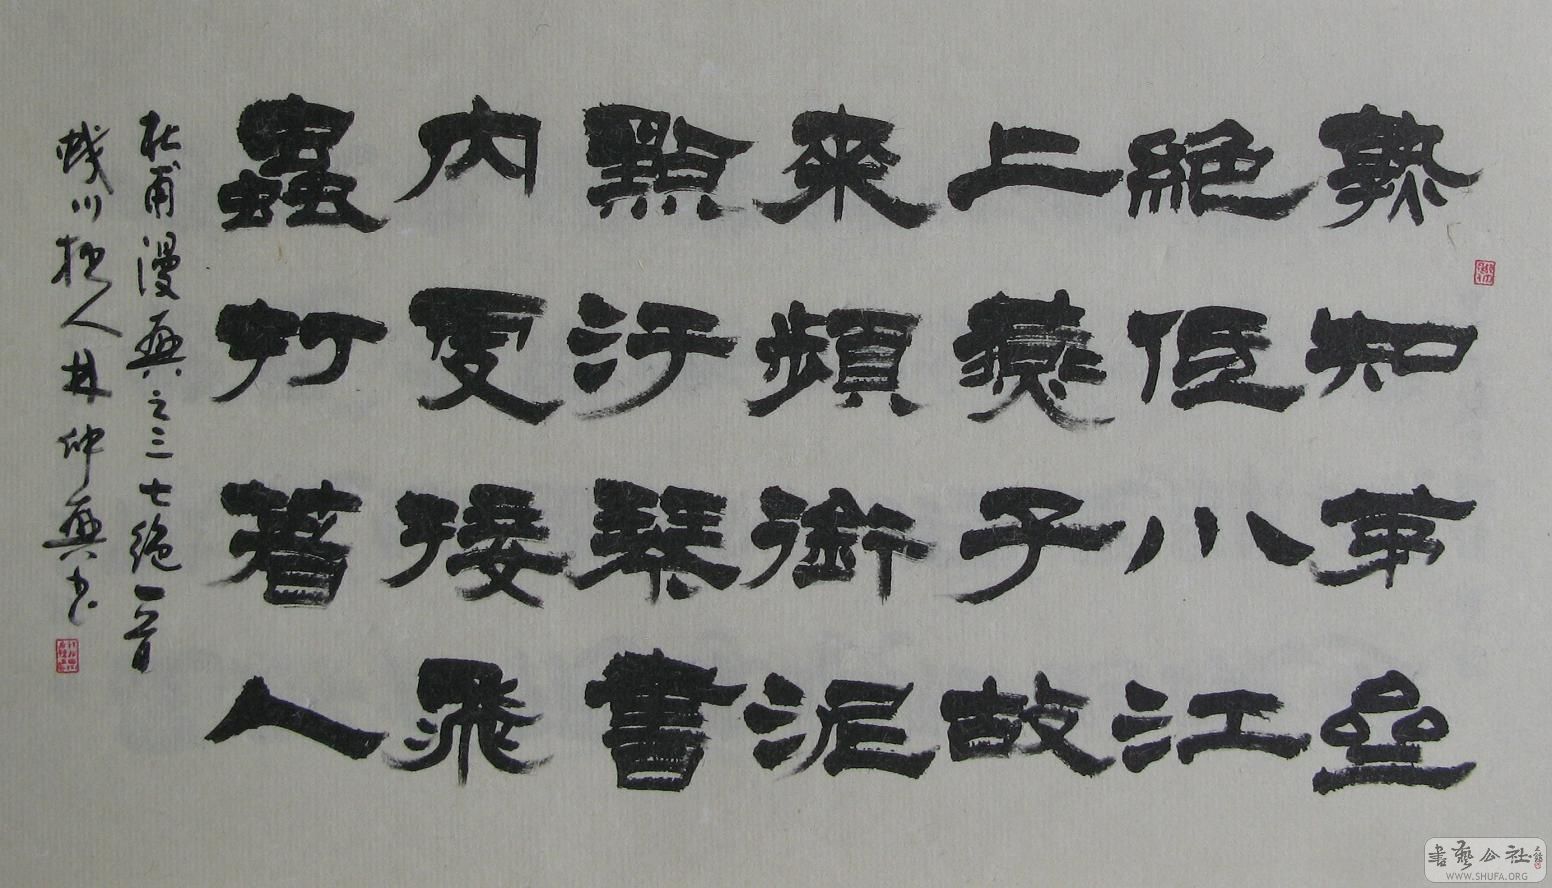 熟知茅亝
絕低小江
上燕子故
來頻銜泥
點汙琴書
內更接飛
蟲打著人
杜甫漫興之三七絕一首
蛟川拙人林仲興书
書藝公社
WWW.SHUFA.ORG